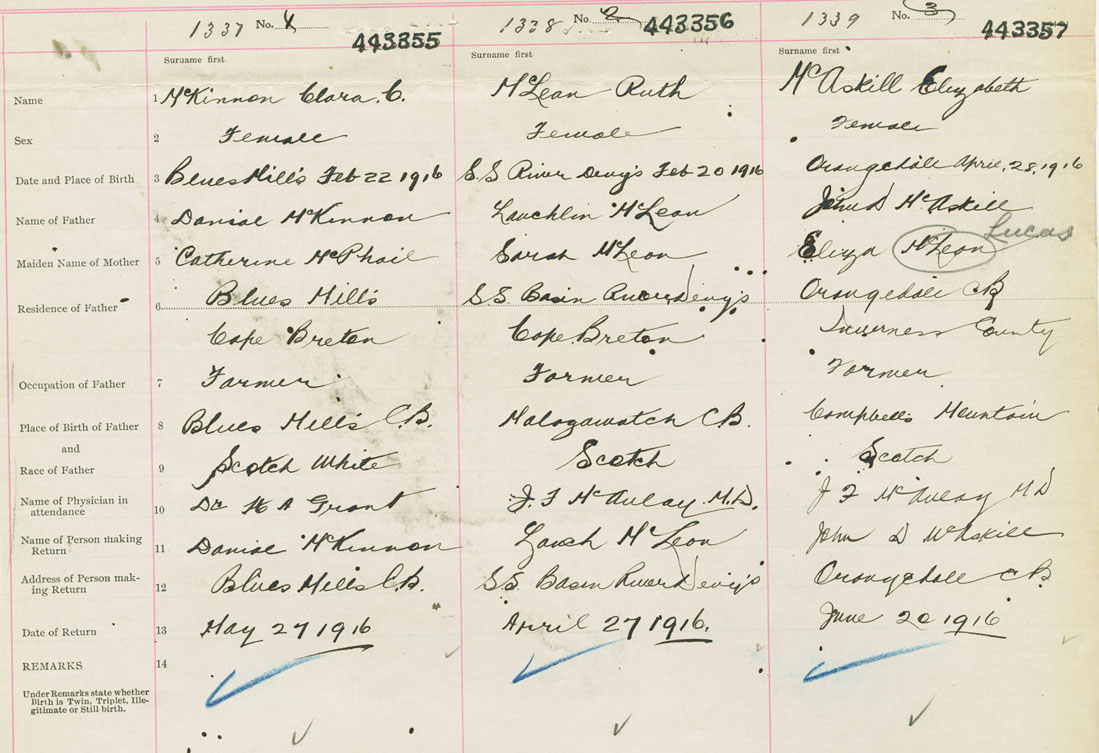 1337 No. 1 443355 1338 No. 2 443356 1339 No. 3 443357
Surname first Surname first Surname first
Name 1 McKinnon Clara. C. McLean Ruth McAskill Elizabeth
Sex 2 Female Female Female
Date and Place of Birth 3 Blues Mills Feb 22 1916 S.S River Denys Feb 20 1916 Orangedale April, 28, 1916
Name of Father 4 Daniel McKinnon Lauchlin McLean John D McAskill
Maiden Name of Mother 5 Catherine McPhail Sarah McLean Eliza McLean Lucas
Residence of Father 6 Blues Mills S.S. Basin River Denys Orangedale CB
Cape Breton Cape Breton Inverness County
Occupation of Father 7 Farmer Farmer Farmer
Place of Birth of Father 8 Blues Mills C.B. Malagawatch C.B. Campbells Mountain
and
Race of Father 9 Scotch White Scotch Scotch
Name of Physician in
attendance 10 Dr H A Grant J. F McAulay. M.D. J F McAulay MD
Name of Person making
Return 11 Daniel McKinnon Lauch McLean John D McAskill
Address of Person mak-
ing Return 12 Blues Mills C.B. S.S. Basin River Denys Orangedale CB
Date of Return 13 May 27 1916 April 27 1916. June 20 1916
REMARKS 14
Under Remarks state whether
Birth is Twin, Triplet, Ille-
gitimate or Still birth.